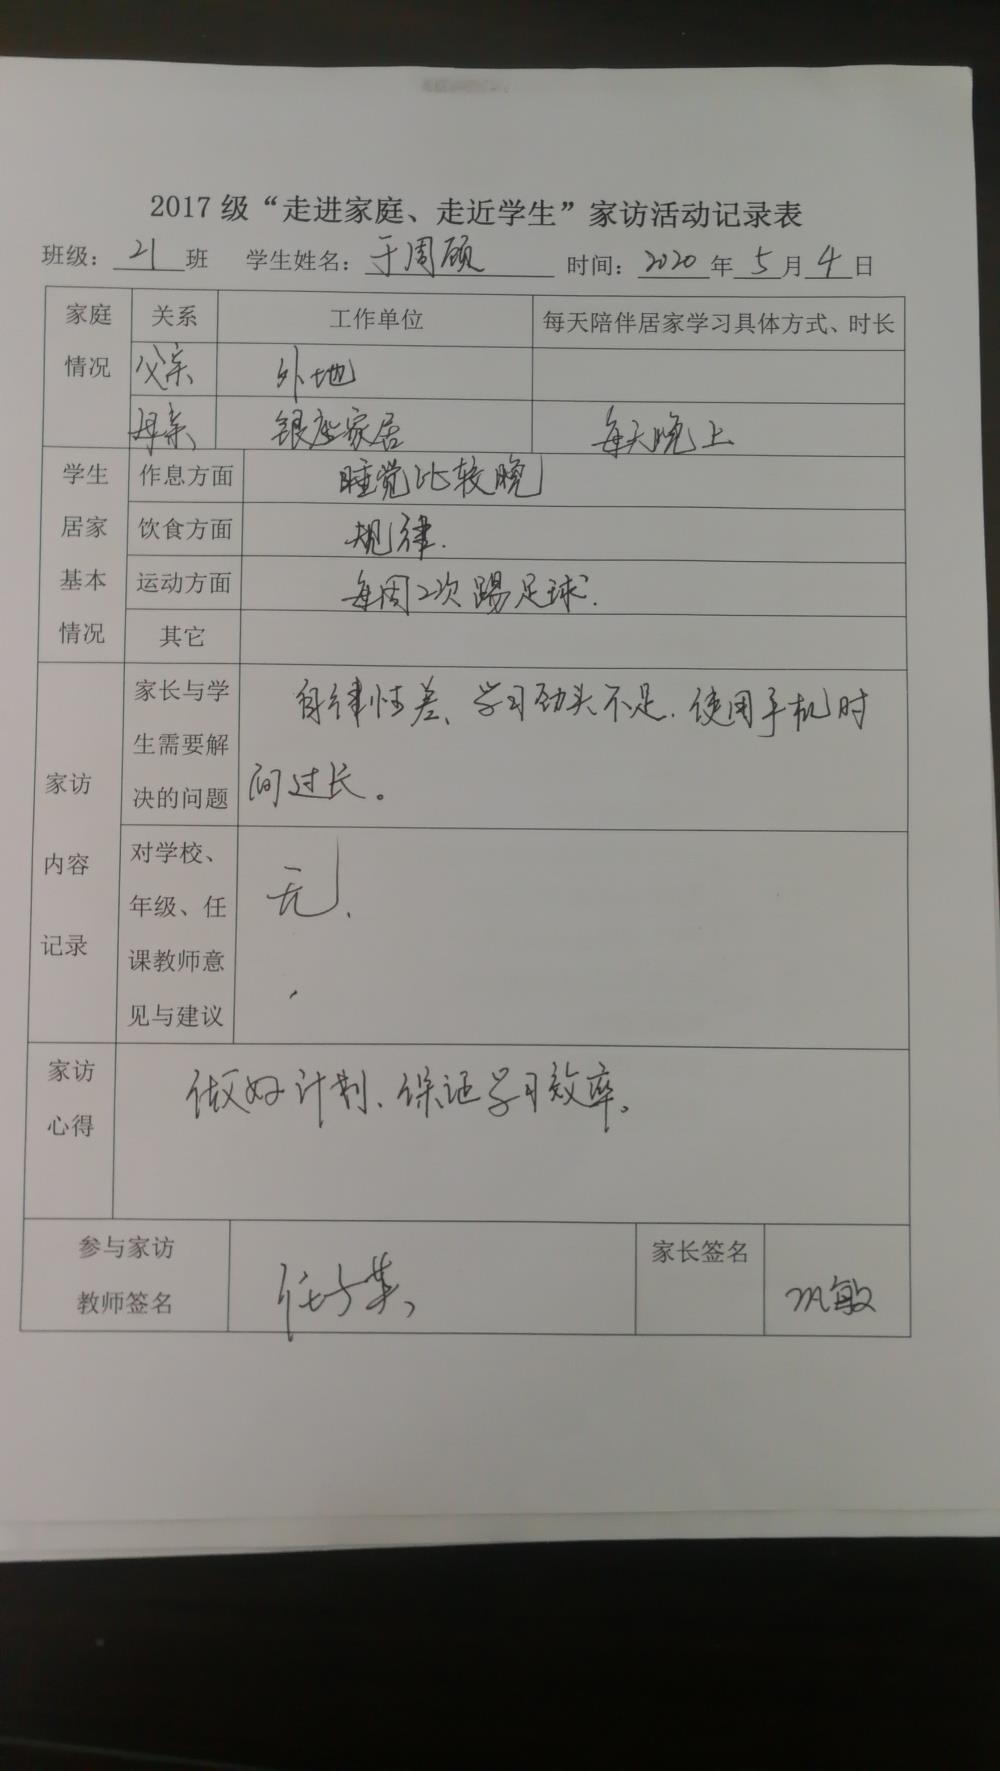 2017级“走进家庭、走近学生”家访活动记录表
班级：21班 学生姓名：于周颀 时间：2020年5月4日
家庭情况 关系 工作单位 每天陪伴居家学习具体方式、时长
父亲 外地
母亲 银座家居 每天晚上
学生居家基本情况 作息方面 睡觉比较晚
饮食方面 规律.
运动方面 每周2次踢足球.
其它
家访内容记录
家长与学
生需要解
决的问题
自律性差、学习劲头不足.使用手机时
间过长。
对学校、
年级、任
课教师意
见与建议
无.
家访
心得
做好计划、保证学习效率。
参与家访
教师签名
家长签名
巩敏